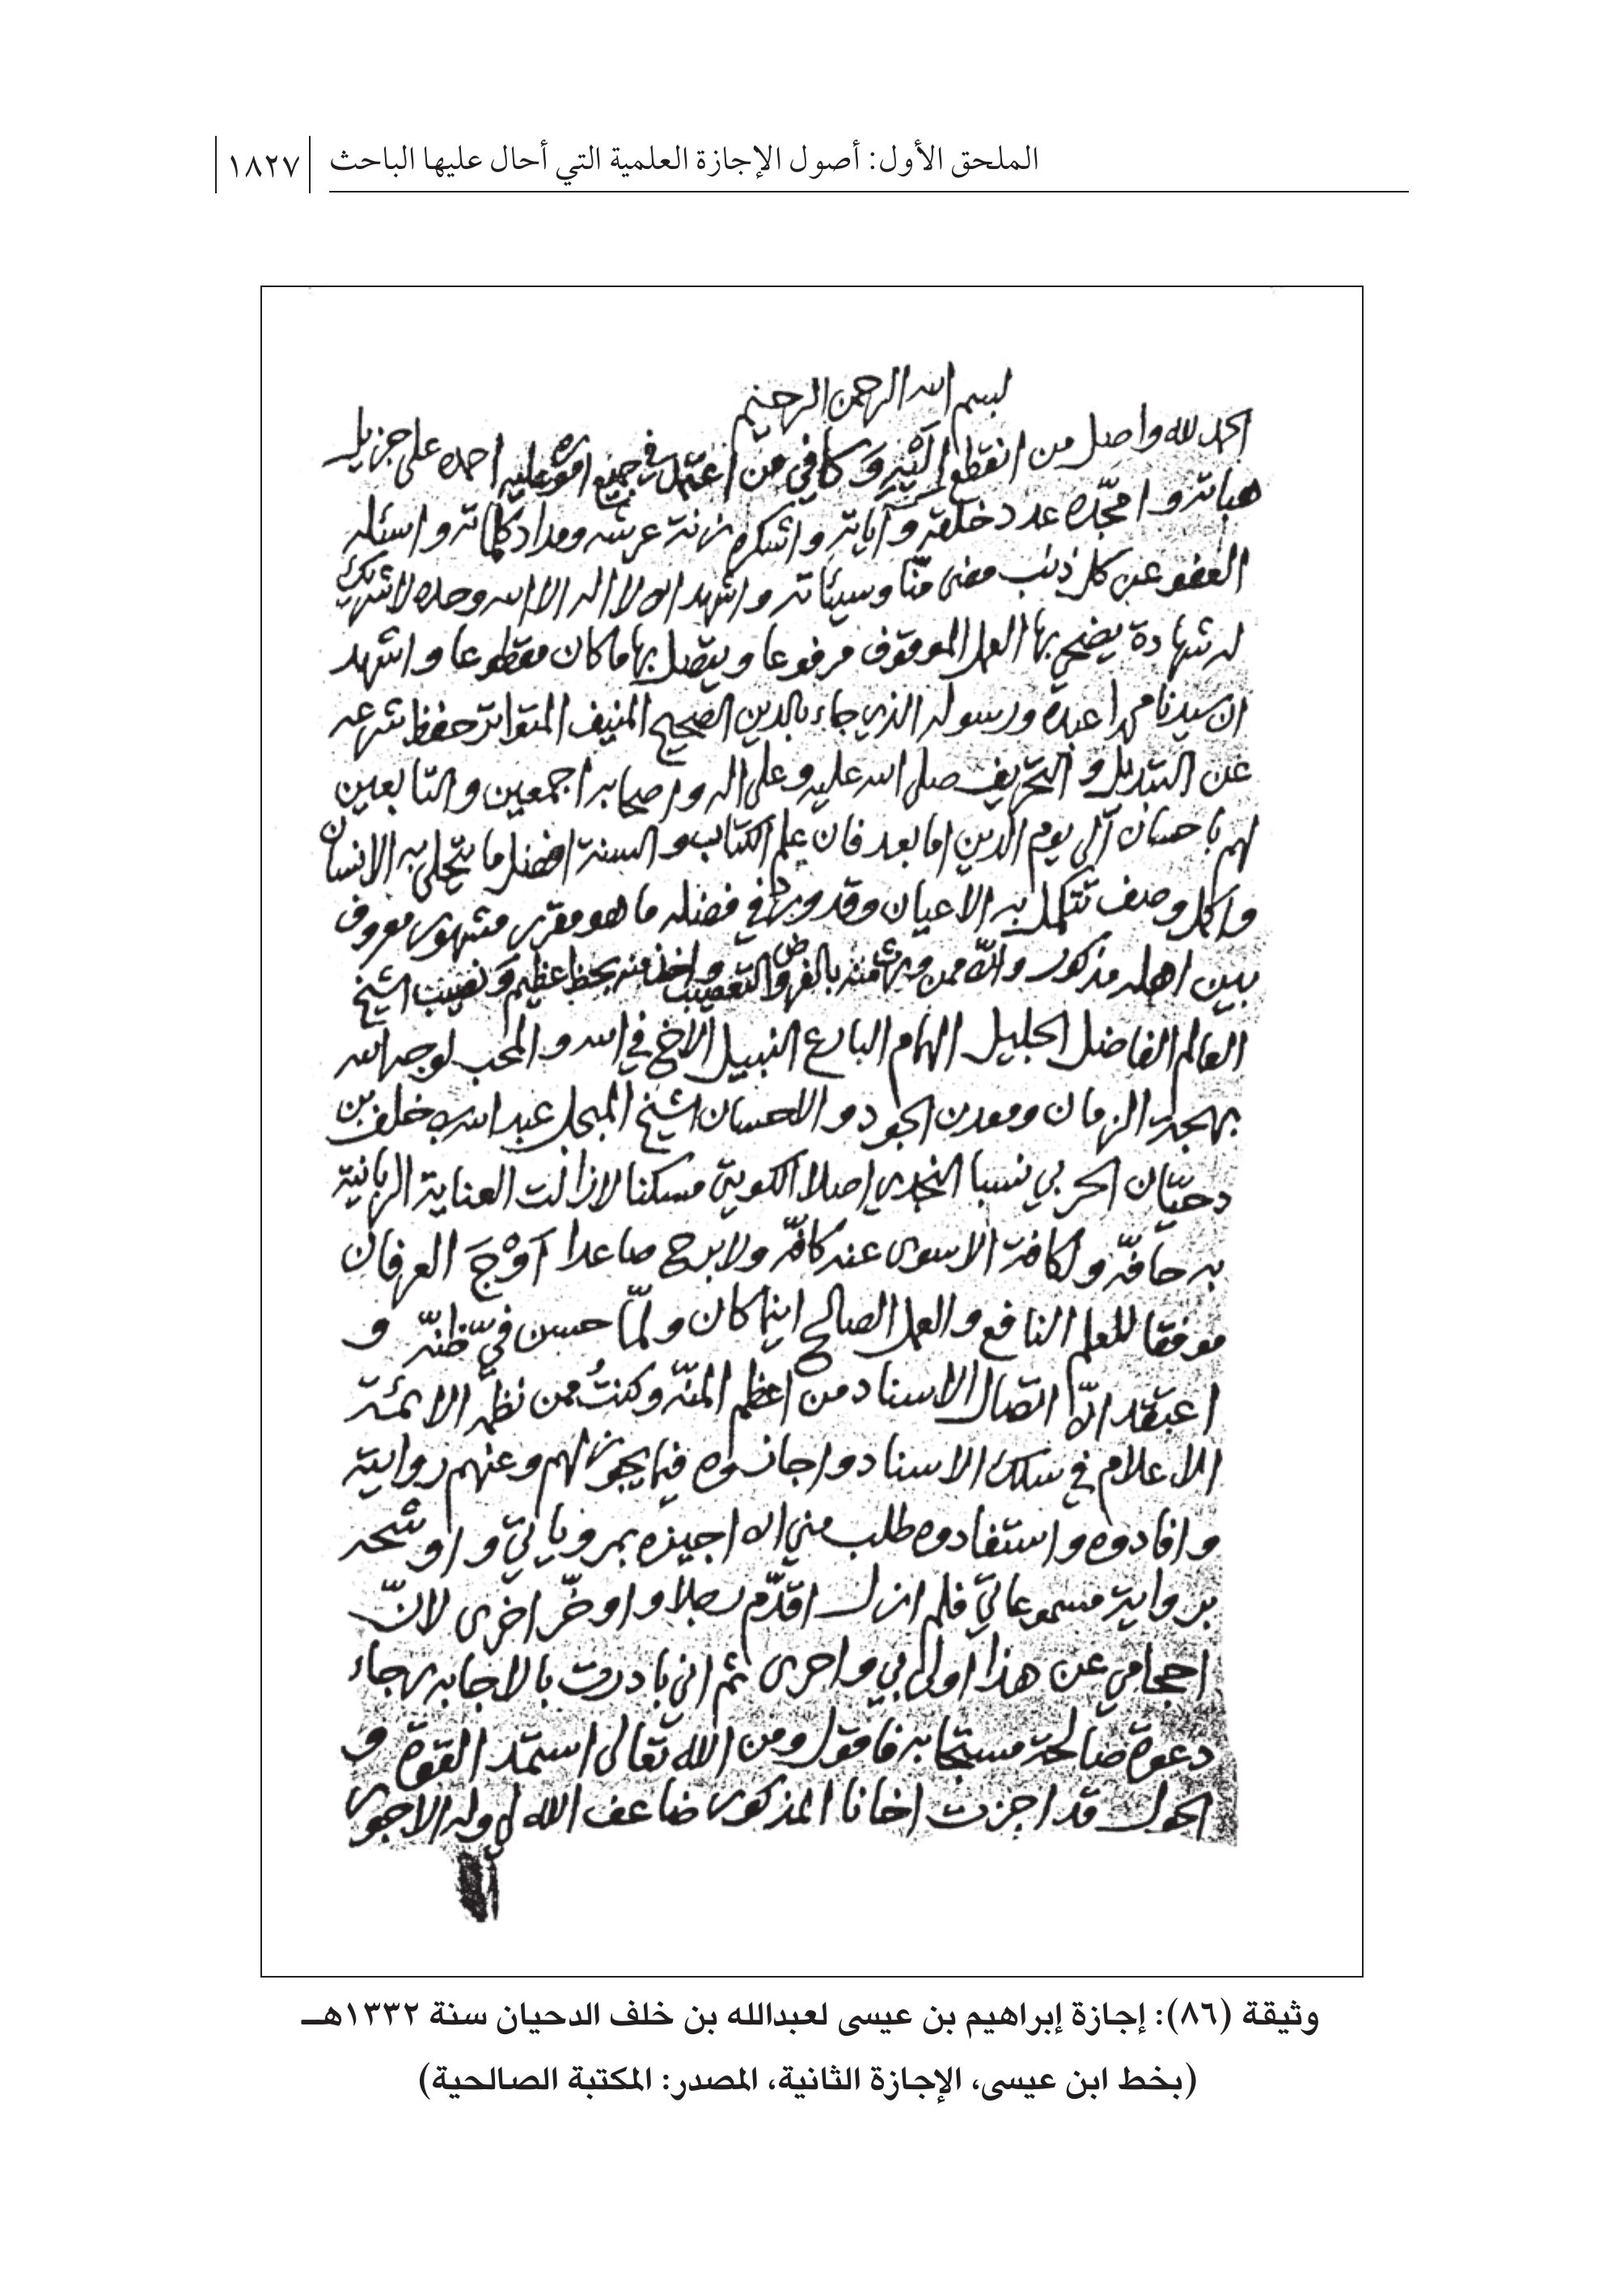 الملحق الأول: أصول الإجازة العلمية التي أحال عليها الباحث ١٨٢٧
بسم الله الرحمن الرحيم
الحمد لله واصل من انقطع إليه وكافي من اعتمد في جميع اموره عليه احمده على جزيل
هباته وامجّده عدد خلقه وآياته واشكره زنة عرشه ومداد كلماته واسئله
العفو عن كل ذنب مضى منّا وسيئاته واشهد ان لا اله الا الله وحده لا شريك
له شهادة يضحى بها العمل الموقوف مرفوعا ويتصل بها ما كان مقطوعا واشهد
ان سيدنا محمدا عبده ورسوله الذي جاء بالدين الصحيح المنيف المتواتر حفظ شرعه
عن التبديل والتحريف صلى الله عليه وعلى اله واصحابه اجمعين والتابعين
لهم باحسان الى يوم الدين اما بعد فان علم الكتاب والسنة افضل ما يتحلى به الانسان
واكمل وصف تتكمل به الاعيان وقد ورد في فضله ما هو مقرر مشهور معروف
بين اهله مذكور وانّ ممن منه بالفرض والتعصيب واخذ منه بحظ عظيم ونصيب الشيخ
العالم الفاضل الجليل الهمام البارع النبيل الاخ في الله والمحب لوجه الله
بهجة الزمان ومعدن الجود والاحسان الشيخ المبجل عبد الله بن خلف بن
دحيّان الحربي نسبا النجدي اصلا الكويتي مسكنا لا زالت العناية الربانية
به حافّه ولكافة الاسوى عنه كافّه ولا برح صاعدا اَوْجَ العرفان
موفقا للعلم النافع والعمل الصالح اينما كان ولمّا حسن فيّ ظنّه و
اعتقد انّ اتصال الاسناد من اعظم المنّه وكنتُ ممن نظمه الائمة
الاعلام في سلك الاسناد واجازوه فيما يجوز لهم وعنهم روايته
وافادوه واستفادوه طلب مني ان اجيزه بمروياتي و
برواية مسموعاتي فلم ازل اقدّم رجلا واوخّر اخرى لانّ
احجامي عن هذا اولى بي واحرى ثم اني بادرت بالاجابه رجاء
دعوة صالحة مستجابه فاقول ومن الله تعالى استمد القوة و
الحول قد اجزت اخانا المذكور ضاعف الله لي وله الاجور
وثيقة (٨٦): إجازة إبراهيم بن عيسى لعبدالله بن خلف الدحيان سنة ١٣٣٢هـ
(بخط ابن عيسى، الإجازة الثانية، المصدر: المكتبة الصالحية)